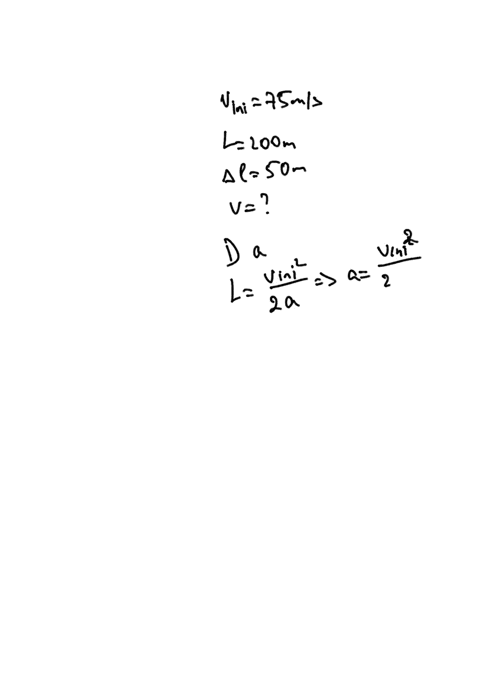 Vini = 75m/s
L = 200m
Δl = 50m
V = ?
1) a
L = Vini²/2a => a = Vini²/2